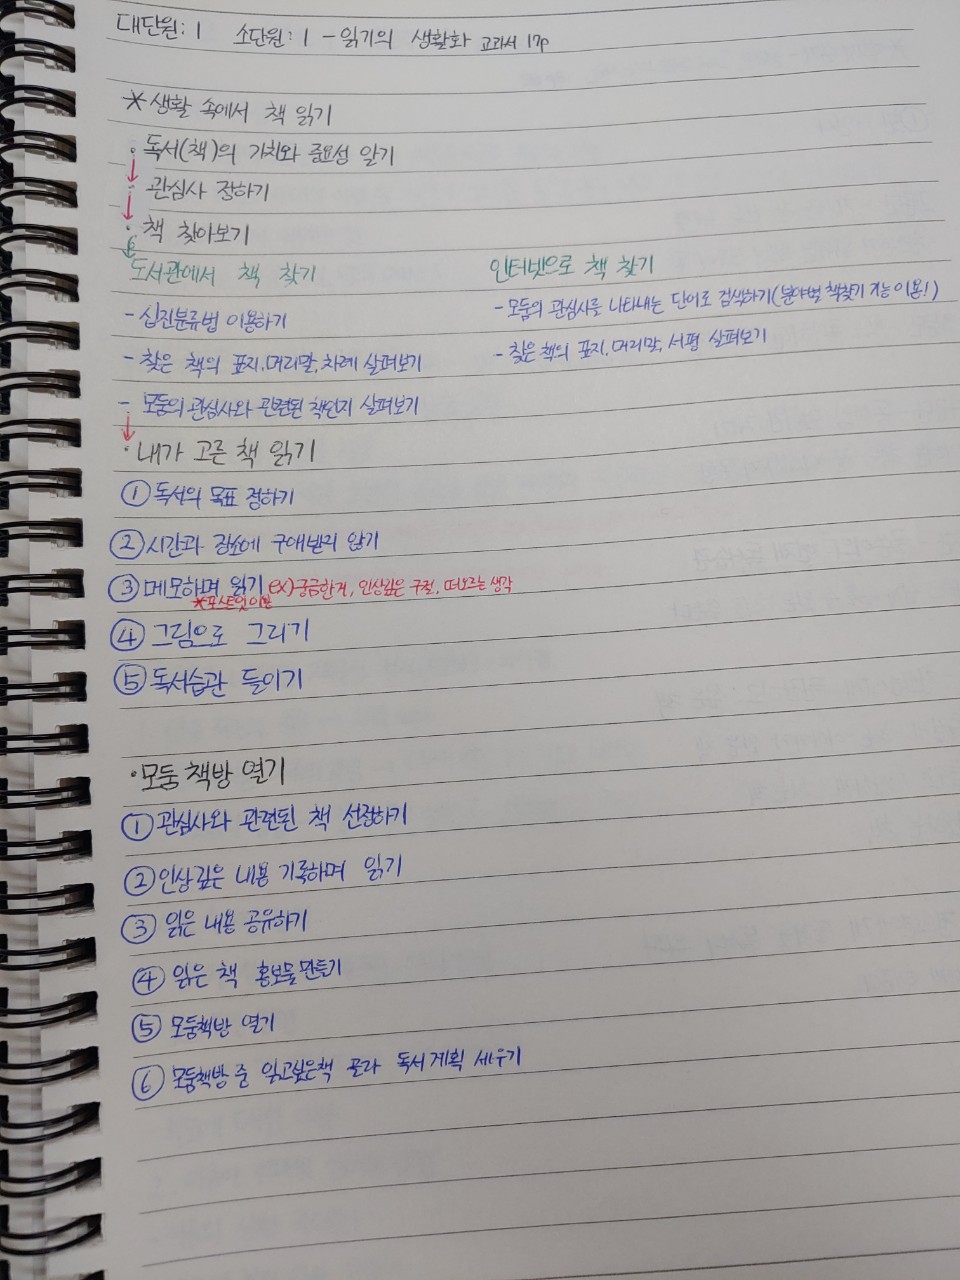 대단원: 1 소단원: 1 - 읽기의 생활화 교과서 17p
* 생활 속에서 책 읽기
· 독서(책)의 가치와 중요성 알기
· 관심사 정하기
· 책 찾아보기
도서관에서 책 찾기
- 십진분류법 이용하기
- 찾은 책의 표지, 머리말, 차례 살펴보기
- 모둠의 관심사와 관련된 책인지 살펴보기
인터넷으로 책 찾기
- 모둠의 관심사를 나타내는 단어로 검색하기(분야별 책찾기 기능 이용!)
- 찾은 책의 표지, 머리말, 서평 살펴보기
· 내가 고른 책 읽기
① 독서의 목표 정하기
② 시간과 장소에 구애받지 않기
③ 메모하며 읽기 ex) 궁금한거, 인상깊은 구절, 떠오르는 생각
*포스트잇 이용
④ 그림으로 그리기
⑤ 독서습관 들이기
· 모둠 책방 열기
① 관심사와 관련된 책 선정하기
② 인상깊은 내용 기록하며 읽기
③ 읽은 내용 공유하기
④ 읽은 책 홍보물 만들기
⑤ 모둠책방 열기
⑥ 모둠책방 중 읽고싶은책 골라 독서 계획 세우기